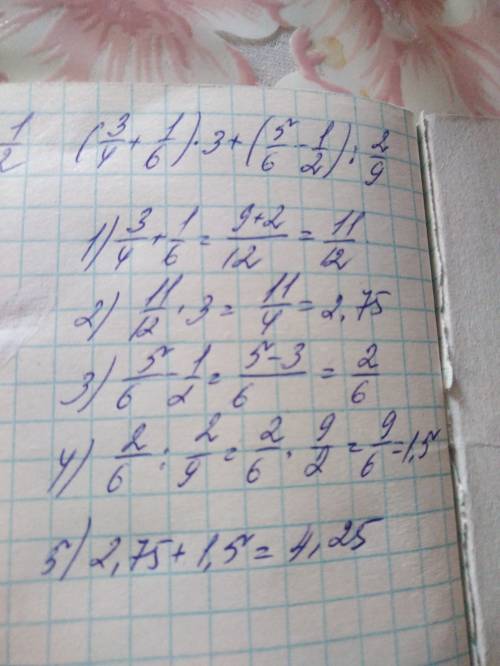 1/2 (3/4 + 1/6) · 3 + (5/6 - 1/2) : 2/9
1) 3/4 + 1/6 = 9+2/12 = 11/12
2) 11/12 · 3 = 11/4 = 2,75
3) 5/6 - 1/2 = 5-3/6 = 2/6
4) 2/6 : 2/9 = 2/6 · 9/2 = 9/6 = 1,5
5) 2,75 + 1,5 = 4,25